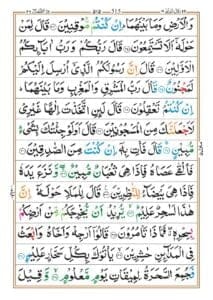 ٥١٥
وَالْاَرْضِ وَمَا بَيْنَهُمَا ؕ اِنْ كُنْتُمْ مُّوْقِنِيْنَ ۝ قَالَ لِمَنْ
حَوْلَهٗۤ اَلَا تَسْتَمِعُوْنَ ۝ قَالَ رَبُّكُمْ وَرَبُّ اٰبَآئِكُمُ
الْاَوَّلِيْنَ ۝ قَالَ اِنَّ رَسُوْلَكُمُ الَّذِيْۤ اُرْسِلَ اِلَيْكُمْ
لَمَجْنُوْنٌ ۝ قَالَ رَبُّ الْمَشْرِقِ وَالْمَغْرِبِ وَمَا بَيْنَهُمَا ؕ
اِنْ كُنْتُمْ تَعْقِلُوْنَ ۝ قَالَ لَئِنِ اتَّخَذْتَ اِلٰهًا غَيْرِيْ
لَاَجْعَلَنَّكَ مِنَ الْمَسْجُوْنِيْنَ ۝ قَالَ اَوَلَوْ جِئْتُكَ بِشَيْءٍ
مُّبِيْنٍ ۝ قَالَ فَاْتِ بِهٖۤ اِنْ كُنْتَ مِنَ الصّٰدِقِيْنَ ۝
فَاَلْقٰى عَصَاهُ فَاِذَا هِيَ ثُعْبَانٌ مُّبِيْنٌ ۝ وَّنَزَعَ يَدَهٗ
فَاِذَا هِيَ بَيْضَآءُ لِلنّٰظِرِيْنَ ۝ قَالَ لِلْمَلَاِ حَوْلَهٗۤ اِنَّ
هٰذَا لَسٰحِرٌ عَلِيْمٌ ۝ يُّرِيْدُ اَنْ يُّخْرِجَكُمْ مِّنْ اَرْضِكُمْ
بِسِحْرِهٖ ۖ فَمَاذَا تَاْمُرُوْنَ ۝ قَالُوْۤا اَرْجِهْ وَاَخَاهُ وَابْعَثْ
فِي الْمَدَآئِنِ حٰشِرِيْنَ ۝ يَاْتُوْكَ بِكُلِّ سَحَّارٍ عَلِيْمٍ ۝
فَجُمِعَ السَّحَرَةُ لِمِيْقَاتِ يَوْمٍ مَّعْلُوْمٍ ۝ وَّقِيْلَ